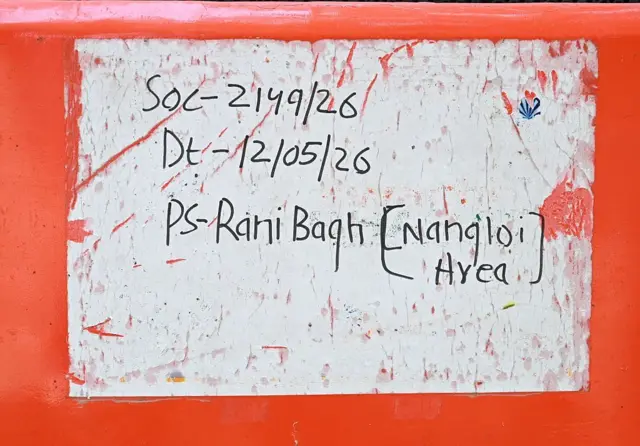 SOC-2149/26
Dt-12/05/26
PS-Rani Bagh [Nangloi
Area]